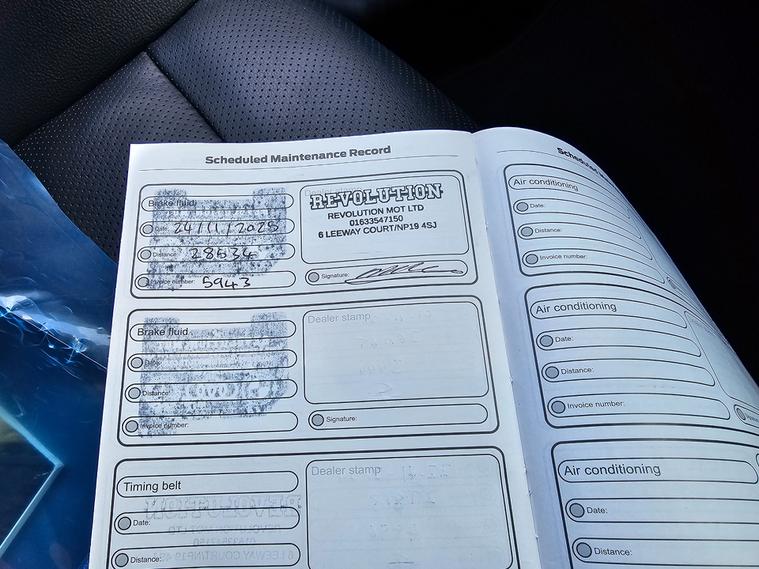 Scheduled Maintenance Record
Brake fluid
Date: 24/11/2025
Distance: 28534
Invoice number: 5943
Dealer stamp
REVOLUTION
REVOLUTION MOT LTD
01633547150
6 LEEWAY COURT/NP19 4SJ
Signature:
Brake fluid
Date:
Distance:
Invoice number:
Dealer stamp
Signature:
Timing belt
Date:
Distance:
Dealer stamp
Scheduled
Air conditioning
Date:
Distance:
Invoice number:
Air conditioning
Date:
Distance:
Invoice number:
Air conditioning
Date:
Distance: